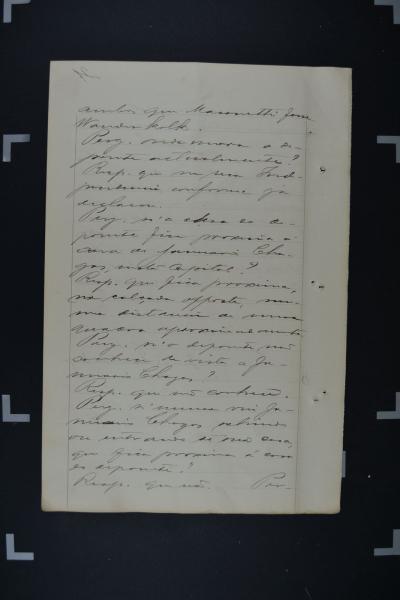 que Masonetti José
Wanderkolk.
Perg. onde mora o de-
poente actualmente?
Resp. que na sua
conforme já
declarou.
Perg. si a casa do de-
poente fica proxima á
casa de Januario Cha-
gas, nesta Capital?
Resp. que fica proxima,
na calçada opposta, nu-
ma distancia de uma
quadra aproximadamente.
Perg. si o depoente não
conhece de vista a Ja-
nuario Chagas?
Resp. que não conhece.
Perg. si nunca viu Ja-
nuario Chagas sahindo
ou entrando de sua casa,
que fica proxima á casa
do depoente?
Resp. que não. Per-